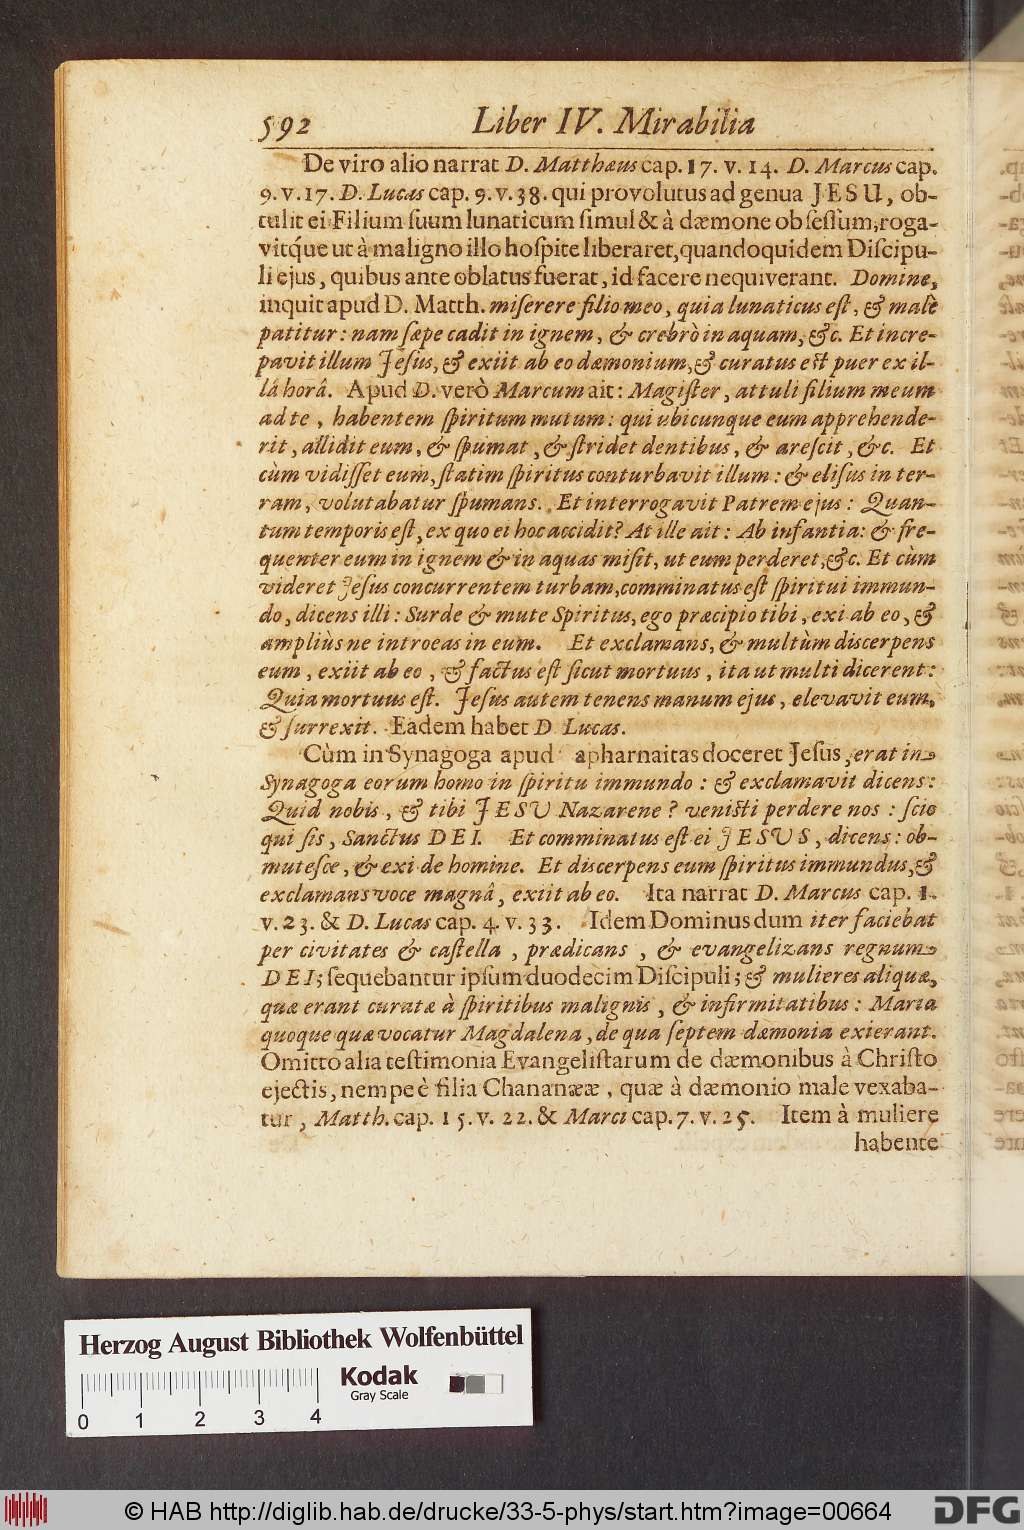 592 Liber IV. Mirabilia
De viro alio narrat D. Matthæus cap. 17. v. 14. D. Marcus cap.
9. v. 17. D. Lucas cap. 9. v. 38. qui provolutus ad genua JESU, ob-
tulit ei Filium ſuum lunaticum ſimul & à dæmone obſeſſum, roga-
vitq́ue ut à maligno illo hoſpite liberaret, quandoquidem Diſcipu-
li ejus, quibus ante oblatus fuerat, id facere nequiverant. Domine,
inquit apud D. Matth. miſerere filio meo, quia lunaticus eſt, & malè
patitur: nam ſæpe cadit in ignem, & crebrò in aquam, &c. Et incre-
pavit illum Jeſus, & exiit ab eo dæmonium, & curatus eſt puer ex il-
lâ horâ. Apud D. verò Marcum ait: Magiſter, attuli filium meum
ad te, habentem ſpiritum mutum: qui ubicunque eum apprehende-
rit, allidit eum, & ſpumat, & ſtridet dentibus, & areſcit, &c. Et
cùm vidiſſet eum, ſtatim ſpiritus conturbavit illum: & eliſus in ter-
ram, volutabatur ſpumans. Et interrogavit Patrem ejus: Quan-
tum temporis eſt, ex quo ei hoc accidit? At ille ait: Ab infantia: & fre-
quenter eum in ignem & in aquas miſit, ut eum perderet, &c. Et cùm
videret Jeſus concurrentem turbam, comminatus eſt ſpiritui immun-
do, dicens illi: Surde & mute Spiritus, ego præcipio tibi, exi ab eo, &
ampliùs ne introeas in eum. Et exclamans, & multùm discerpens
eum, exiit ab eo, & factus eſt ſicut mortuus, ita ut multi dicerent:
Quia mortuus eſt. Jeſus autem tenens manum ejus, elevavit eum,
& ſurrexit. Eadem habet D Lucas.
Cùm in Synagoga apud apharnaitas doceret Jeſus, erat in
Synagoga eorum homo in ſpiritu immundo: & exclamavit dicens:
Quid nobis, & tibi JESU Nazarene? veniſti perdere nos: ſcio
qui ſis, Sanctus DEI. Et comminatus eſt ei JESUS, dicens: ob-
muteſce, & exi de homine. Et discerpens eum ſpiritus immundus, &
exclamans voce magnâ, exiit ab eo. Ita narrat D. Marcus cap. 1.
v. 23. & D. Lucas cap. 4. v. 33. Idem Dominus dum iter faciebat
per civitates & caſtella, prædicans, & evangelizans regnum
DEI; ſequebantur ipſum duodecim Diſcipuli; & mulieres aliquæ,
quæ erant curatæ à ſpiritibus malignis, & infirmitatibus: Maria
quoque quæ vocatur Magdalena, de qua ſeptem dæmonia exierant.
Omitto alia teſtimonia Evangeliſtarum de dæmonibus à Chriſto
ejectis, nempe è filia Chananææ, quæ à dæmonio male vexaba-
tur, Matth. cap. 15. v. 22. & Marci cap. 7. v. 25. Item à muliere
habente
Herzog August Bibliothek Wolfenbüttel
Kodak
Gray Scale
0 1 2 3 4
© HAB http://diglib.hab.de/drucke/33-5-phys/start.htm?image=00664
DFG